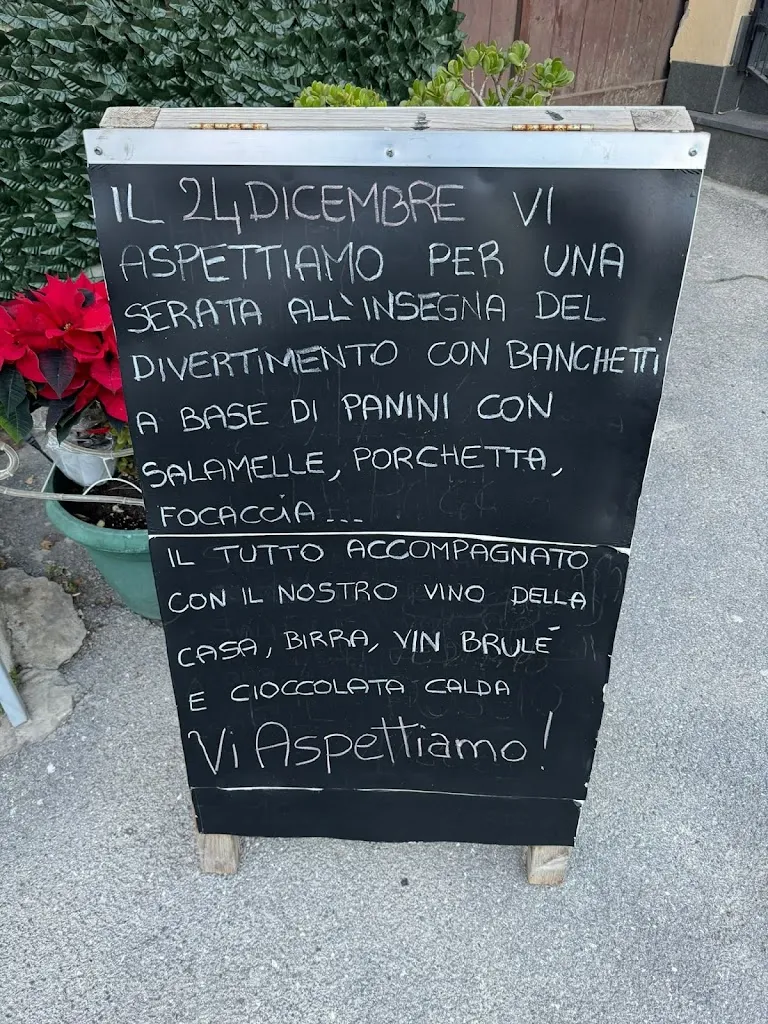 IL 24 DICEMBRE VI
ASPETTIAMO PER UNA
SERATA ALL'INSEGNA DEL
DIVERTIMENTO CON BANCHETTI
A BASE DI PANINI CON
SALAMELLE, PORCHETTA,
FOCACCIA...
IL TUTTO ACCOMPAGNATO
CON IL NOSTRO VINO DELLA
CASA, BIRRA, VIN BRULÉ
E CIOCCOLATA CALDA
Vi Aspettiamo!